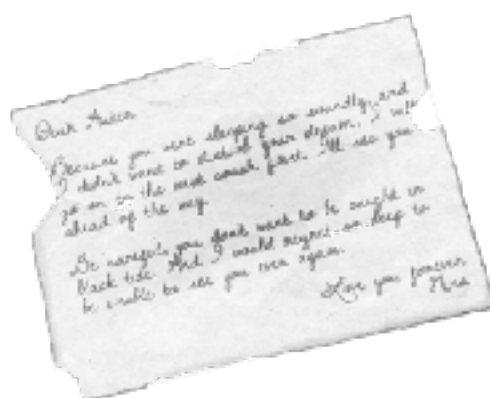 Dear
Because you were sleeping so soundly, and
I didn't want to disturb your dream. I will
go on to the next coast first. I'll see you
ahead of the way.
Be careful, you dont want to be caught in
black tide. And I would regret so deep to
be unable to see you ever again.
Love you forever